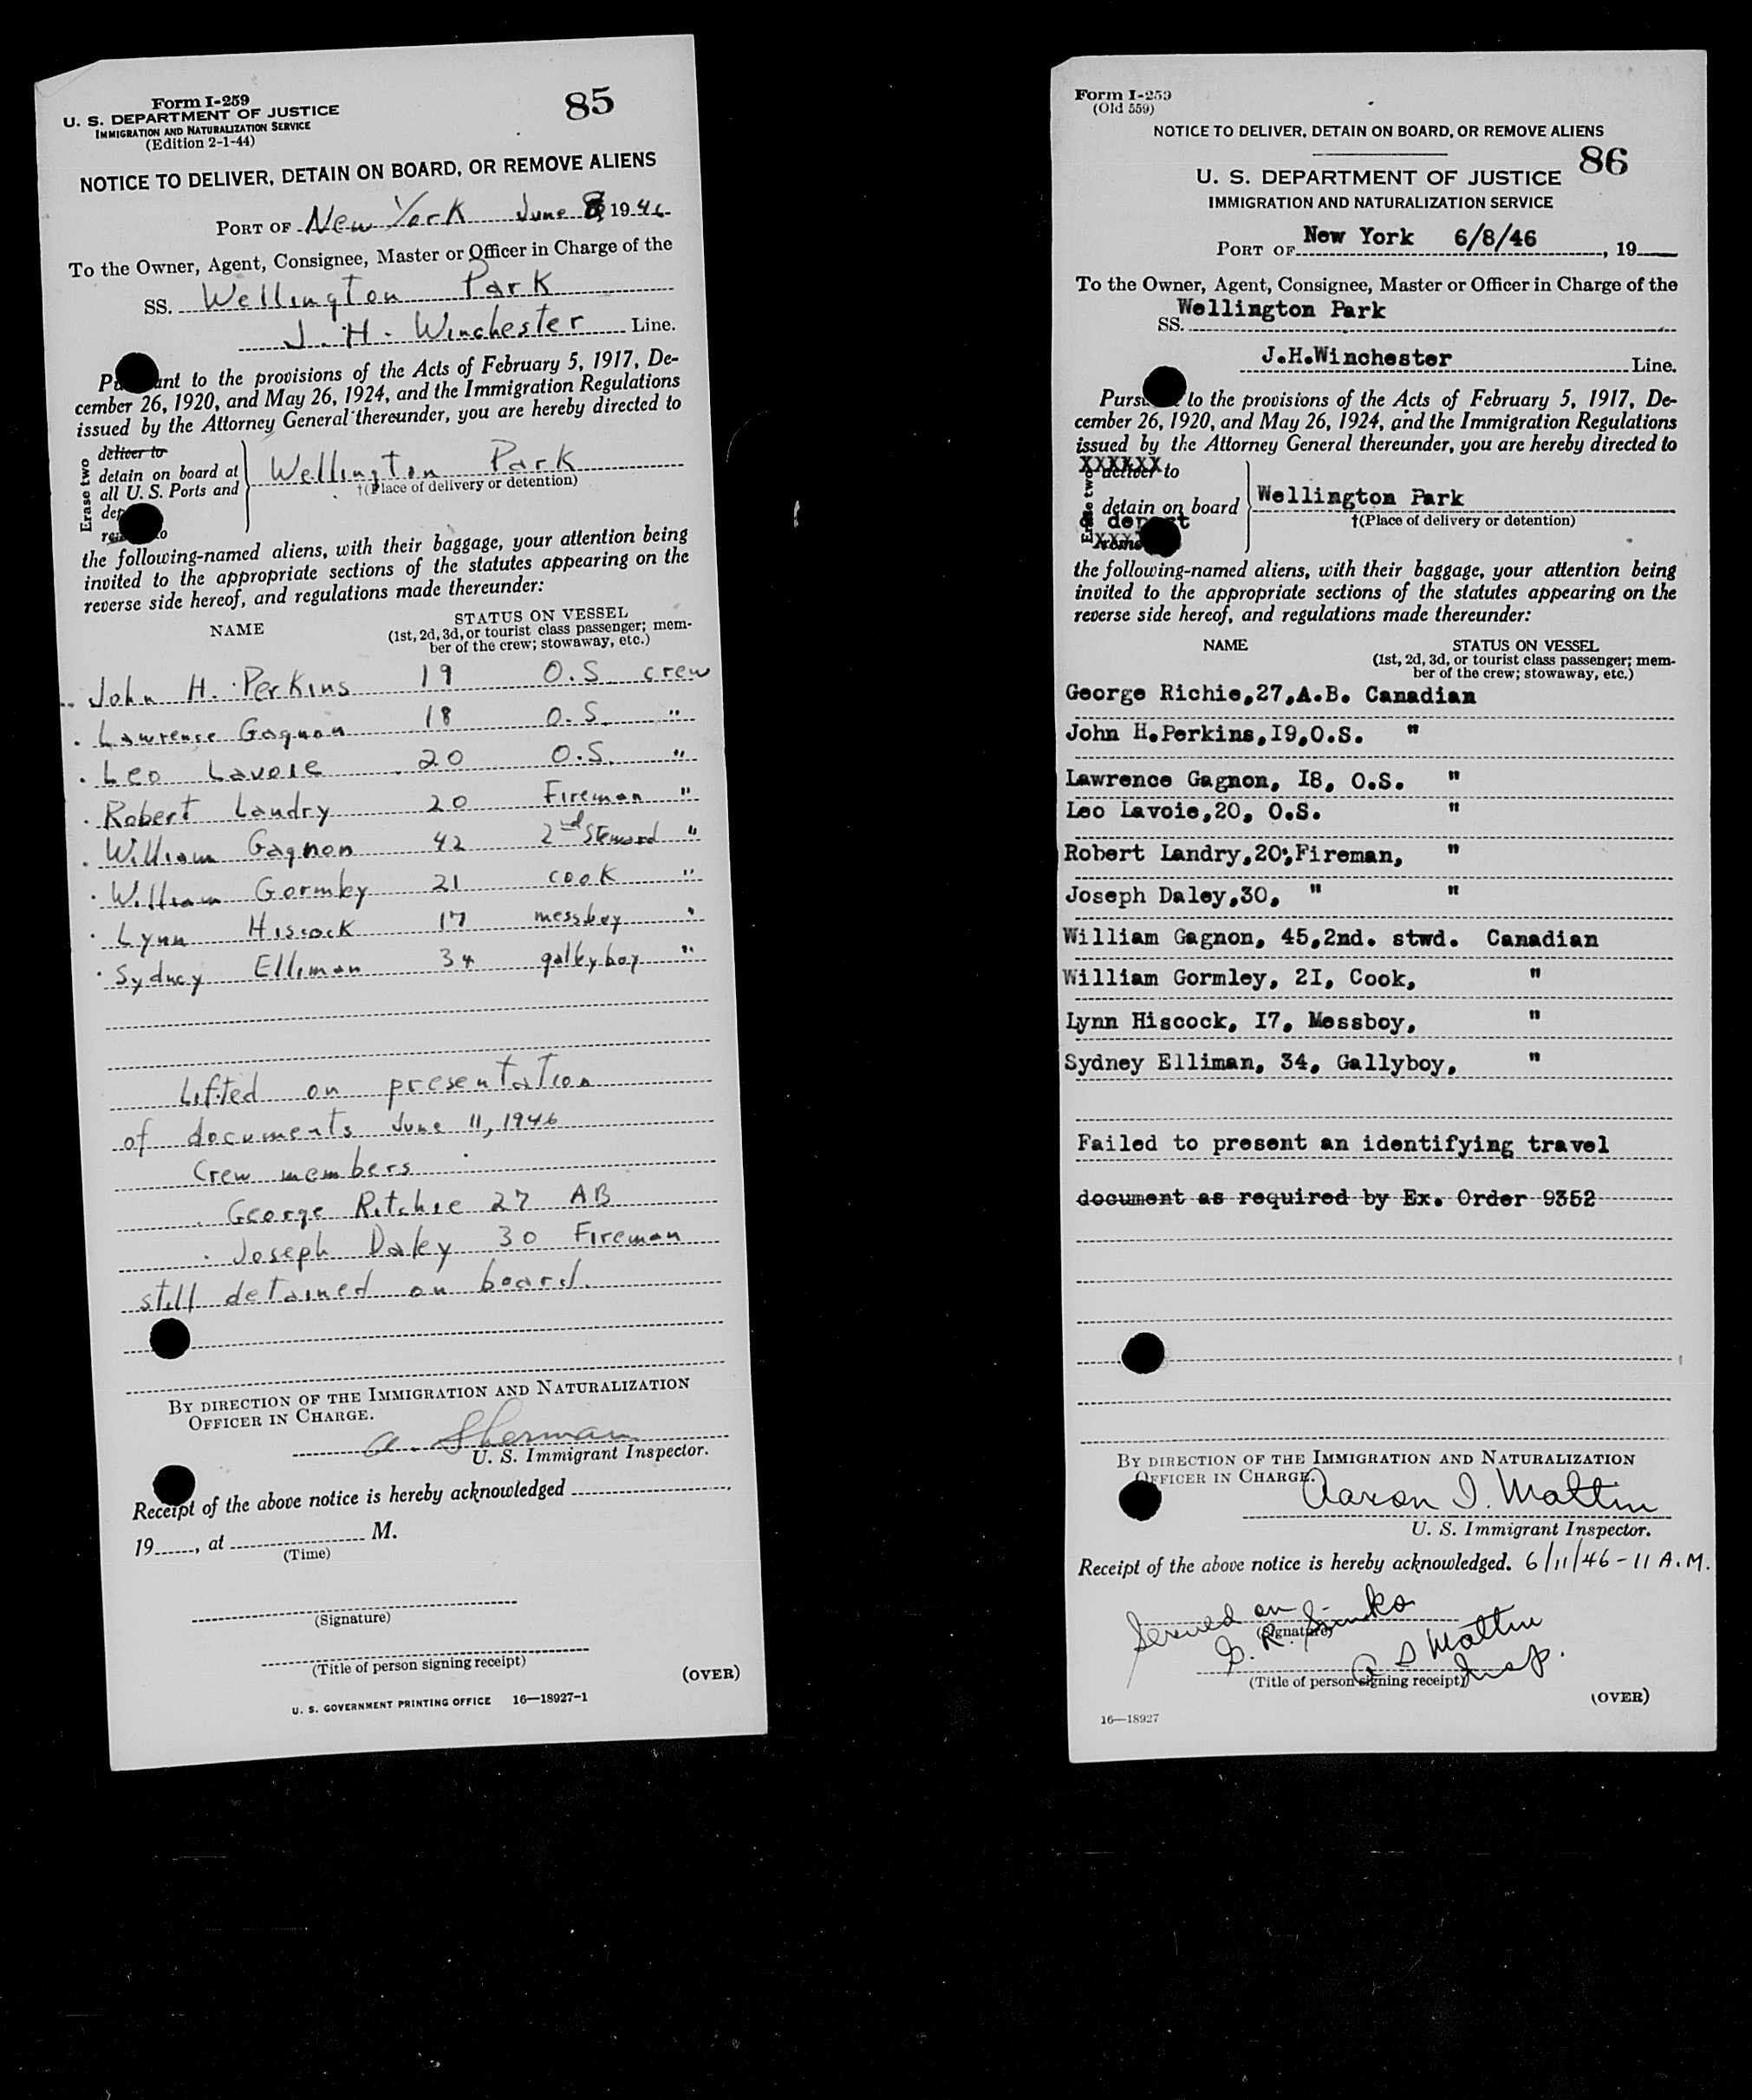 Form I-259
U. S. DEPARTMENT OF JUSTICE
IMMIGRATION AND NATURALIZATION SERVICE
(Edition 2-1-44)
85
NOTICE TO DELIVER, DETAIN ON BOARD, OR REMOVE ALIENS
PORT OF New York June 8, 1946
To the Owner, Agent, Consignee, Master or Officer in Charge of the
SS. Wellington Park
J. H. Winchester Line.
to the provisions of the Acts of February 5, 1917, De-
cember 26, 1920, and May 26, 1924, and the Immigration Regulations
issued by the Attorney General thereunder, you are hereby directed to
Erase two
deliver to
detain on board at
all U. S. Ports and
Wellington Park
†(Place of delivery or detention)
the following-named aliens, with their baggage, your attention being
invited to the appropriate sections of the statutes appearing on the
reverse side hereof, and regulations made thereunder:
NAME
STATUS ON VESSEL
(1st, 2d, 3d, or tourist class passenger; mem-
ber of the crew; stowaway, etc.)
John H. Perkins 19 O.S. crew
Lawrence Gagnon 18 O.S. "
Leo Lavoie 20 O.S. "
Robert Landry 20 Fireman "
William Gagnon 42 2nd Steward "
William Gormley 21 cook "
Lynn Hiscock 17 messboy "
Sydney Elliman 34 galleyboy "
Lifted on presentation
of documents June 11, 1946
Crew members
George Ritchie 27 AB
Joseph Daley 30 Fireman
still detained on board.
BY DIRECTION OF THE IMMIGRATION AND NATURALIZATION
OFFICER IN CHARGE.
A. Sherman
U. S. Immigrant Inspector.
Receipt of the above notice is hereby acknowledged
19 , at M.
(Time)
(Signature)
(Title of person signing receipt)
(OVER)
U. S. GOVERNMENT PRINTING OFFICE 16—18927-1
Form I-259
(Old 559)
NOTICE TO DELIVER, DETAIN ON BOARD, OR REMOVE ALIENS
86
U. S. DEPARTMENT OF JUSTICE
IMMIGRATION AND NATURALIZATION SERVICE
PORT OF New York 6/8/46 , 19
To the Owner, Agent, Consignee, Master or Officer in Charge of the
SS. Wellington Park
J.H.Winchester Line.
to the provisions of the Acts of February 5, 1917, De-
cember 26, 1920, and May 26, 1924, and the Immigration Regulations
issued by the Attorney General thereunder, you are hereby directed to
XXXXXX
deliver to
detain on board
Wellington Park
†(Place of delivery or detention)
the following-named aliens, with their baggage, your attention being
invited to the appropriate sections of the statutes appearing on the
reverse side hereof, and regulations made thereunder:
NAME
STATUS ON VESSEL
(1st, 2d, 3d, or tourist class passenger; mem-
ber of the crew; stowaway, etc.)
George Richie,27,A.B. Canadian
John H.Perkins,I9,O.S. "
Lawrence Gagnon, I8, O.S. "
Leo Lavoie,20, O.S. "
Robert Landry,20,Fireman, "
Joseph Daley,30, " "
William Gagnon, 45,2nd. stwd. Canadian
William Gormley, 2I, Cook, "
Lynn Hiscock, I7, Messboy, "
Sydney Elliman, 34, Gallyboy, "
Failed to present an identifying travel
document as required by Ex. Order 9352
BY DIRECTION OF THE IMMIGRATION AND NATURALIZATION
OFFICER IN CHARGE.
Aaron I. Maltin
U. S. Immigrant Inspector.
Receipt of the above notice is hereby acknowledged. 6/11/46 - 11 A.M.
Served on
(Signature)
Maltin
Insp.
(Title of person signing receipt)
(OVER)
16—18927